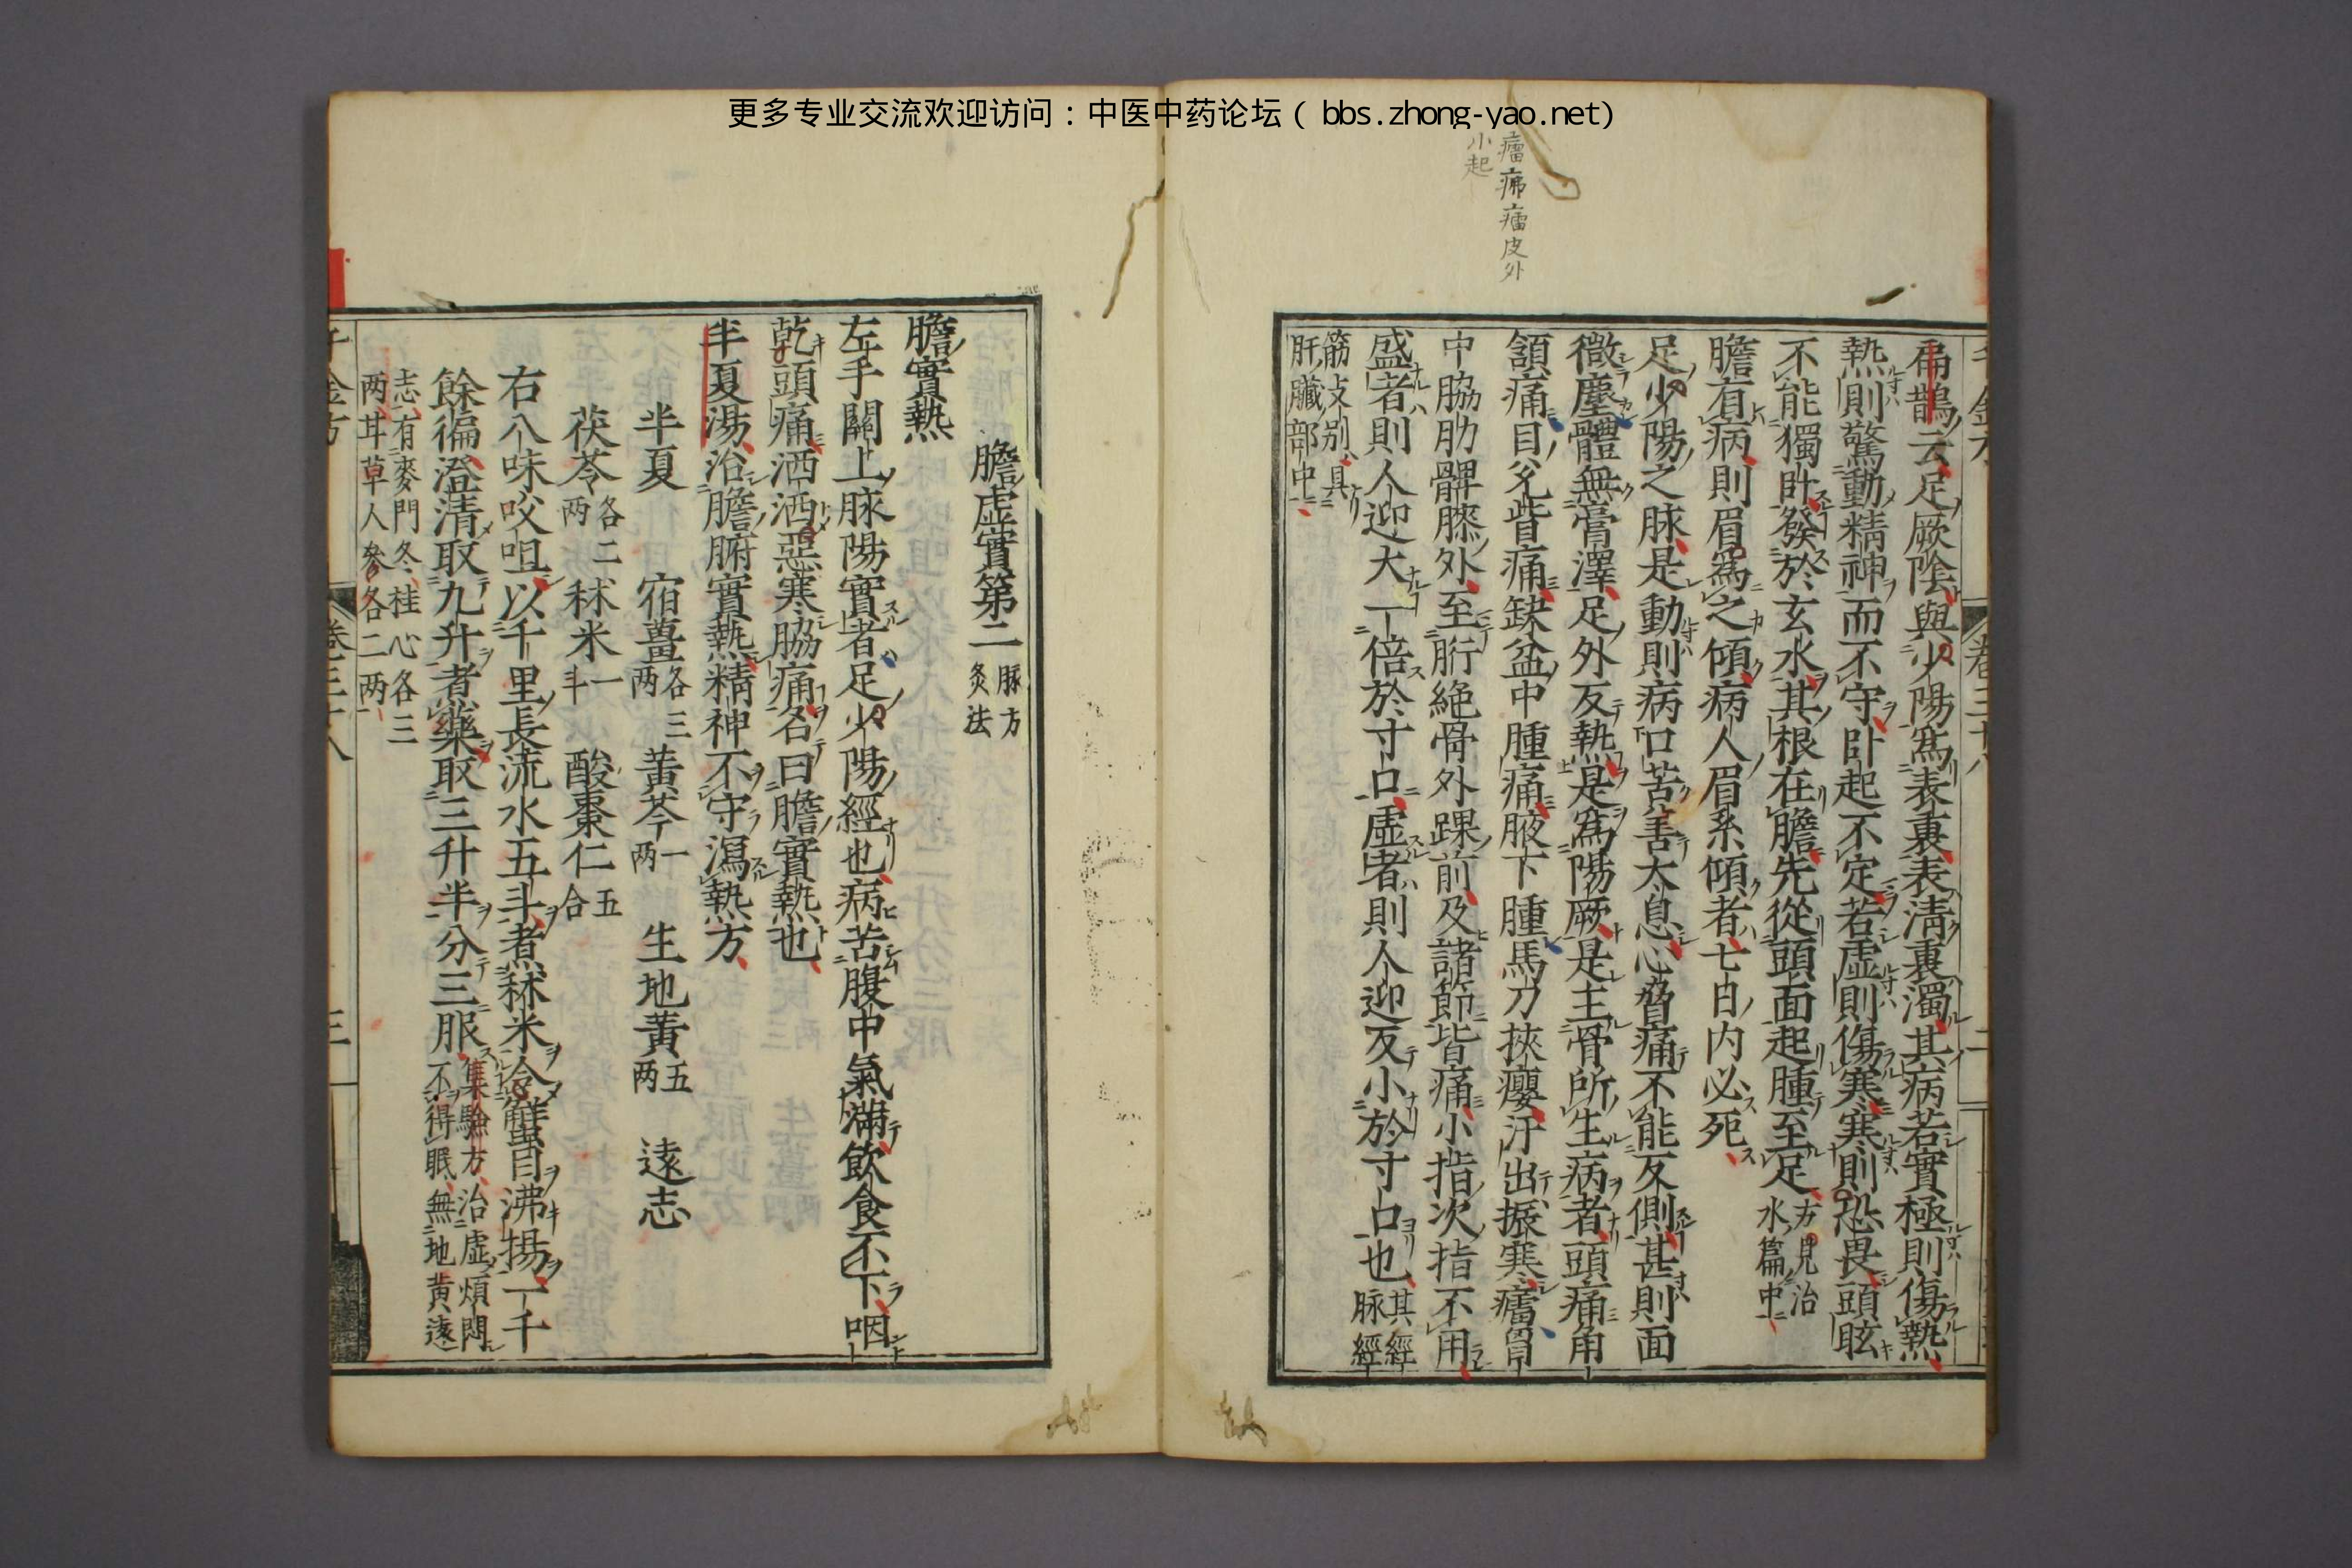 更多专业交流欢迎访问：中医中药论坛（ bbs.zhong-yao.net)
癗疿癗皮外
小起
扁鵲云足厥陰與少陽爲表裏表淸裏濁其病若實極則傷熱
熱則驚動精神而不守卧起不定若虛則傷寒寒則恐畏頭眩
不能獨卧發於玄水其根在膽先從頭面起腫至足方見治
水篇中
膽有病則眉爲之傾病人眉系傾者七日內必死
足少陽之脉是動則病口苦善大息心脅痛不能反側甚則面
微塵體無膏澤足外反熱是爲陽厥是主骨所生病者頭痛角
頷痛目兊眥痛缺盆中腫痛腋下腫馬刀挾癭汗出振寒癗胷
中脇肋髀膝外至胻絕骨外踝前及諸節皆痛小指次指不用
盛者則人迎大一倍於寸口虛者則人迎反小於寸口也其經
脉經
筋支别具
肝臟部中
膽虛實第二脉方
灸法
膽實熱
左手關上脉陽實者足少陽經也病苦腹中氣滿飲食不下咽
乾頭痛洒洒惡寒脇痛名曰膽實熱也
半夏湯治膽腑實熱精神不守瀉熱方
半夏 宿薑各三
两 黃芩一
两 生地黃五
两 遠志
茯苓各二
两 秫米一
斗 酸棗仁五
合
右八味㕮咀以千里長流水五斗煮秫米令蟹目沸揚一千
餘徧澄清取九升煮藥取三升半分三服集驗方治虛煩悶
不得眠無地黃遠
志有麥門冬桂心各三
两甘草人參各二两
千金方
卷三十八
三
卷三十八
二